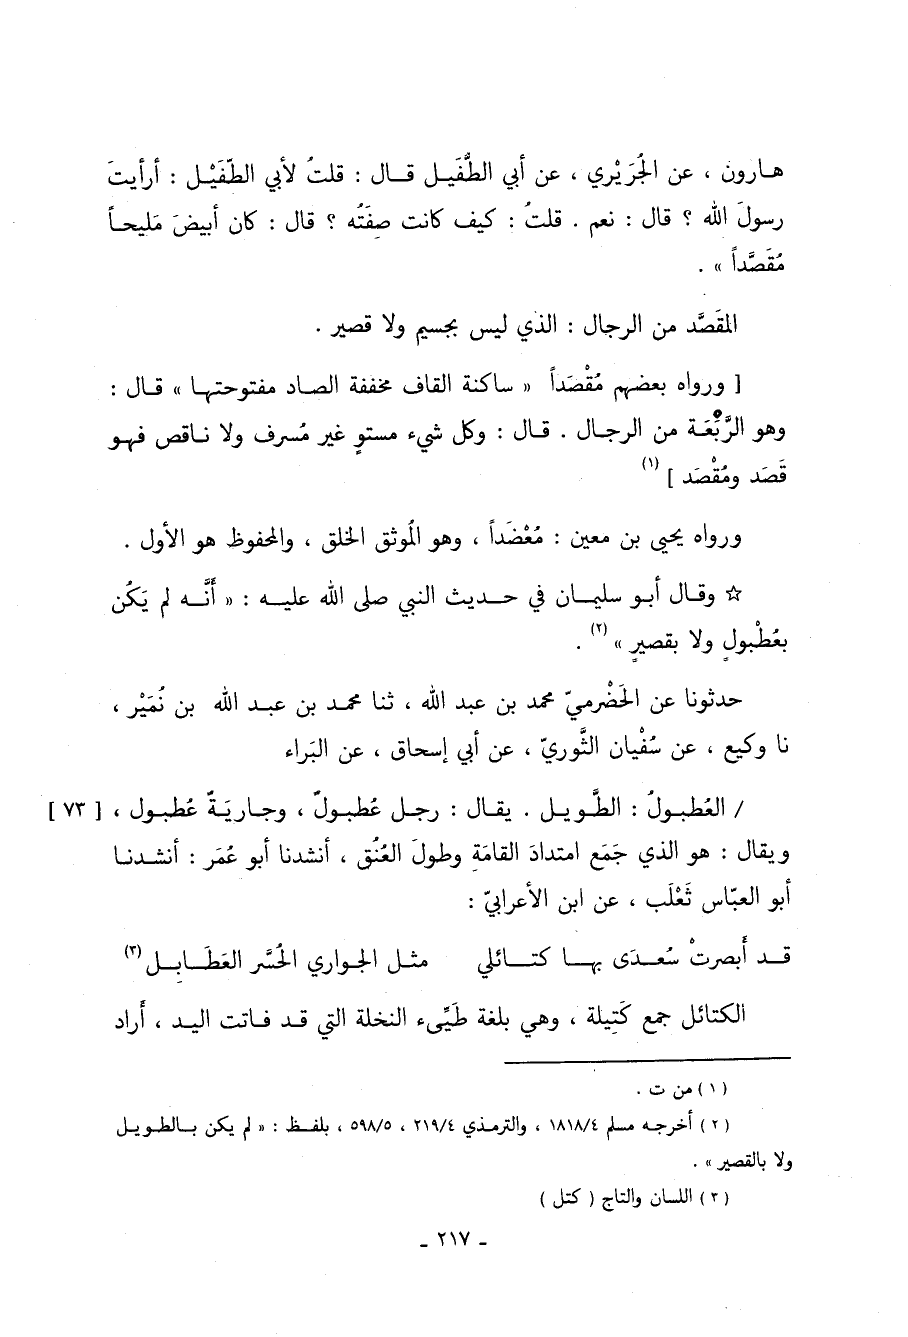 هارون ، عن الجُرَيْري ، عن أبي الطُّفَيل قال : قلتُ لأبي الطّفَيْل : أرأيتَ
رسولَ الله ؟ قال : نعم . قلتُ : كيف كانت صِفَتُه ؟ قال : كان أبيضَ مَليحاً
مُقَصَّداً » .
المقَصَّد من الرجال : الذي ليس بجسيم ولا قصير .
[ ورواه بعضهم مُقْصَداً « ساكنة القاف مخففة الصاد مفتوحتها » قال :
وهو الرَّبْعَة من الرجال . قال : وكل شيء مستوٍ غير مُسرف ولا ناقص فهو
قَصَد ومُقْصَد ] (١)
ورواه يحيى بن معين : مُعْضَداً ، وهو الُموثق الخلق ، والمحفوظ هو الأول .
☆ وقال أبو سليمان في حديث النبي صلى الله عليه : « أَنَّه لم يَكُن
بعُطْبولٍ ولا بقصيرٍ » (٢) .
حدثونا عن الحَضْرميّ محمد بن عبد الله ، ثنا محمد بن عبد الله بن نُمَيْر ،
نا وكيع ، عن سُفْيان الثَّوريّ ، عن أبي إسحاق ، عن البَراء
/ العُطبولُ : الطَّويل . يقال : رجل عُطبولٌ ، وجاريَةٌ عُطبول ، [ ٧٣ ]
ويقال : هو الذي جَمَع امتدادَ القامَةِ وطولَ العُنُق ، أنشدنا أبو عُمَر : أنشدنا
أبو العبّاس ثَعْلَب ، عن ابن الأعرابيّ :
قد أَبصرتْ سُعدَى بها كتائلي مثل الجواري الحُسَّر العَطَابِل (٣)
الكتائل جمع كَتِيلة ، وهي بلغة طَيِّىء النخلة التي قد فاتت اليد ، أَراد
(١) من ت .
(٢) أخرجه مسلم ١٨١٨/٤ ، والترمذي ٢١٩/٤ ، ٥٩٨/٥ ، بلفظ : « لم يكن بالطويل
ولا بالقصير » .
(٣) اللسان والتاج ( كتل )
ـ ٢١٧ ـ